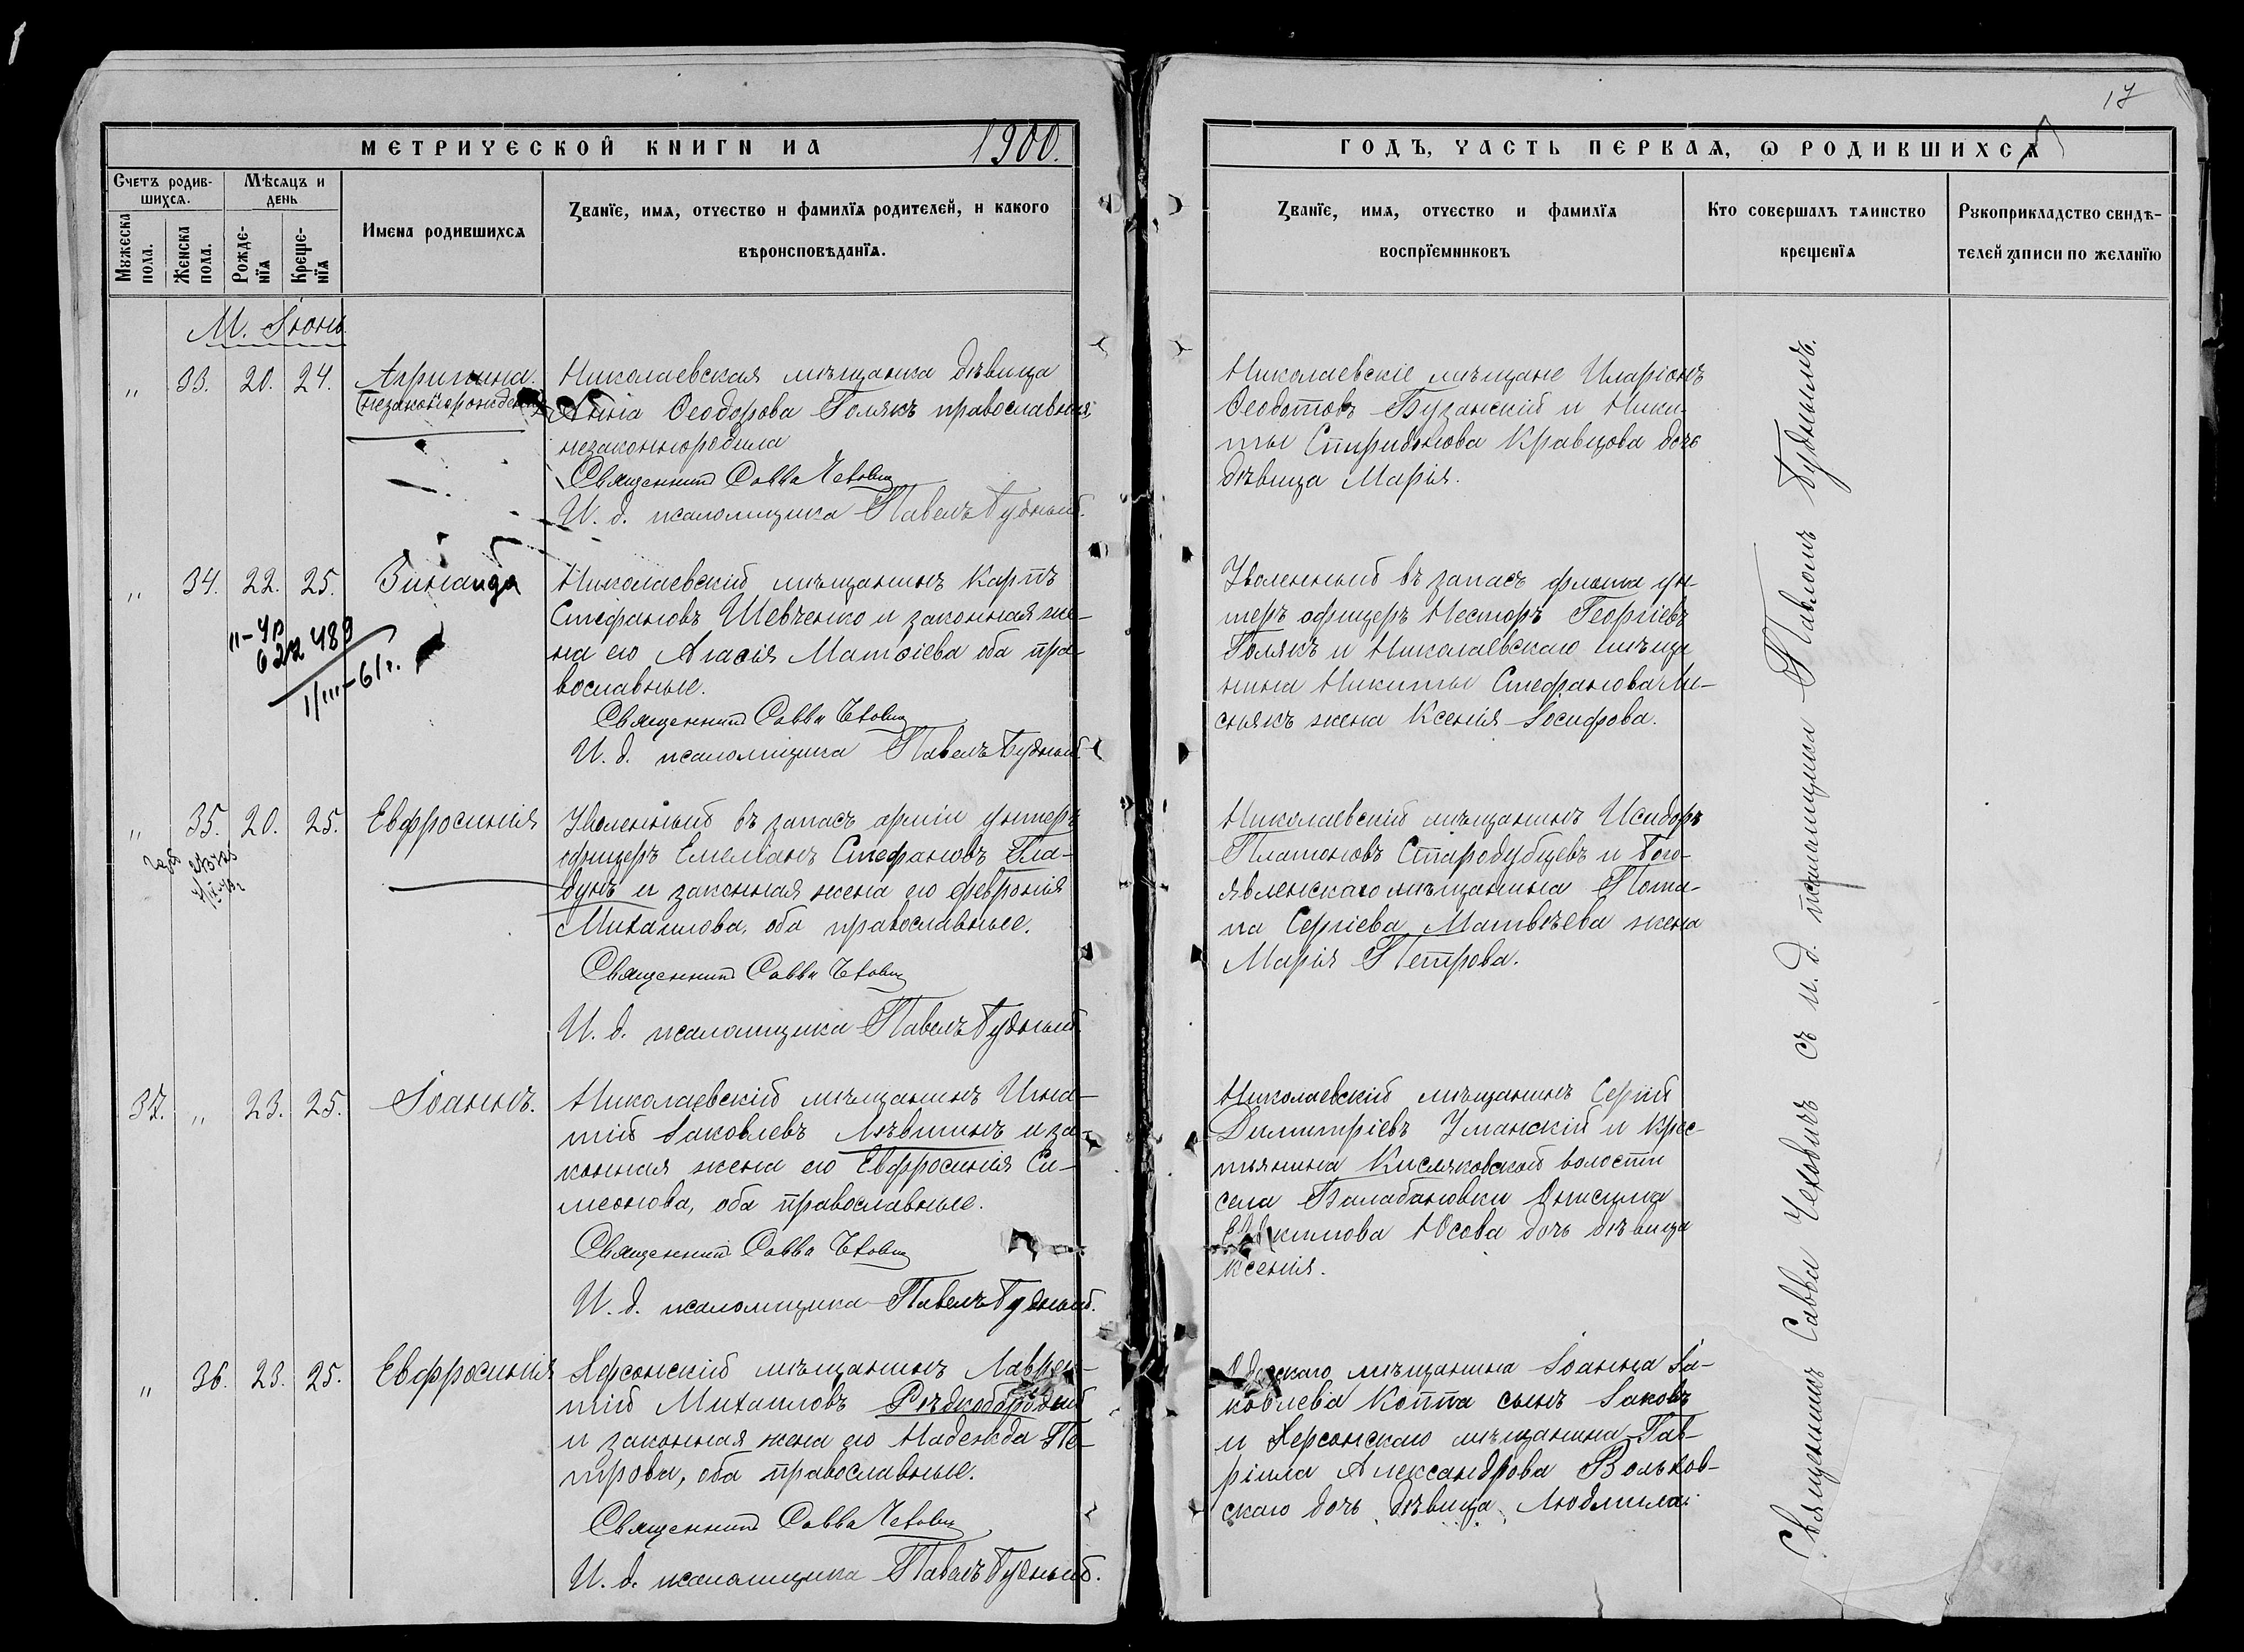 17
МЕТРИЧЕСКОЙ КНИГИ НА 1900.
ГОДЪ, ЧАСТЬ ПЕРВАЯ, Ѡ РОДИВШИХСЯ
Счетъ родив-
шихся.
Мѣсяцъ и
день
Мужеска
пола.
Женска
пола.
Рожде-
нїя
Креще-
нїя
Имена родившихся
Званїе, имя, отчество и фамилїя родителей, и какого
вѣроисповѣданїя.
Званїе, имя, отчество и фамилїя
воспрїемниковъ
Кто совершалъ таинство
крещенїя
Рукоприкладство свидѣ-
телей записи по желанїю
М. Іюнь.
„ 33. 20. 24. Агрипина.
(незаконнорожденная)
Николаевская мѣщанка дѣвица
Анна Ѳеодорова Голякъ православная,
незаконнородила
Священникъ Савва Чеховичъ
И. д. псаломщика Павелъ Будный.
Николаевскіе мѣщане Иларіонъ
Ѳеодотовъ Бузанскій и Ники-
ты Спиридонова Кравцова дочь
дѣвица Марія.
„ 34. 22. 25. Зинаида
Николаевскій мѣщанинъ Карпъ
Стефановъ Шевченко и законная же-
на его Агасія Матѳіева оба пра-
вославные.
Священникъ Савва Чеховичъ
И. д. псаломщика Павелъ Будный.
1/III-61г.
Уволенный въ запасъ флота ун-
теръ офицеръ Несторъ Георгіевъ
Голякъ и Николаевскаго мѣща
нина Никиты Стефанова Ли-
снякъ жена Ксенія Іосифова.
„ 35. 20. 25. Евфросинія
Уволенный въ запасъ арміи унтеръ
офицеръ Емеліанъ Стефановъ Гла-
дунъ и законная жена его Февронія
Михаилова, оба православные.
Священникъ Савва Чеховичъ
И. д. псаломщика Павелъ Будный.
Николаевскій мѣщанинъ Исидоръ
Платоновъ Стародубцевъ и Бого-
явленскаго мѣщанина Пота-
па Сергіева Матвѣева жена
Марія Петрова.
37. „ 23. 25. Іоаннъ.
Николаевскій мѣщанинъ Игна-
тій Іаковлевъ Лѣвтинъ и за-
конная жена его Евфросинія Си-
меонова, оба православные.
Священникъ Савва Чеховичъ
И. д. псаломщика Павелъ Будный.
Николаевскій мѣщанинъ Сергій
Димитріевъ Уманскій и крес-
тьянина Кисляковской волости
села Балабановки Онисима
Евдокимова Юсова дочь дѣвица
Ксенія.
„ 36. 23. 25. Евфросинія
Херсонскій мѣщанинъ Лаврен-
тій Михаиловъ Рѣдкобородый
и законная жена его Надежда Пе-
трова, оба православные.
Священникъ Савва Чеховичъ
И. д. псаломщика Павелъ Будный.
Одесскаго мѣщанина Іоанна Іа-
ковлева Коппа сынъ Іаковъ
и Херсонскаго мѣщанина Гав-
ріила Александрова Вольхов-
скаго дочь дѣвица Людмила.
Священникъ Савва Чеховичъ съ и. д. псаломщика Павломъ Буднымъ.